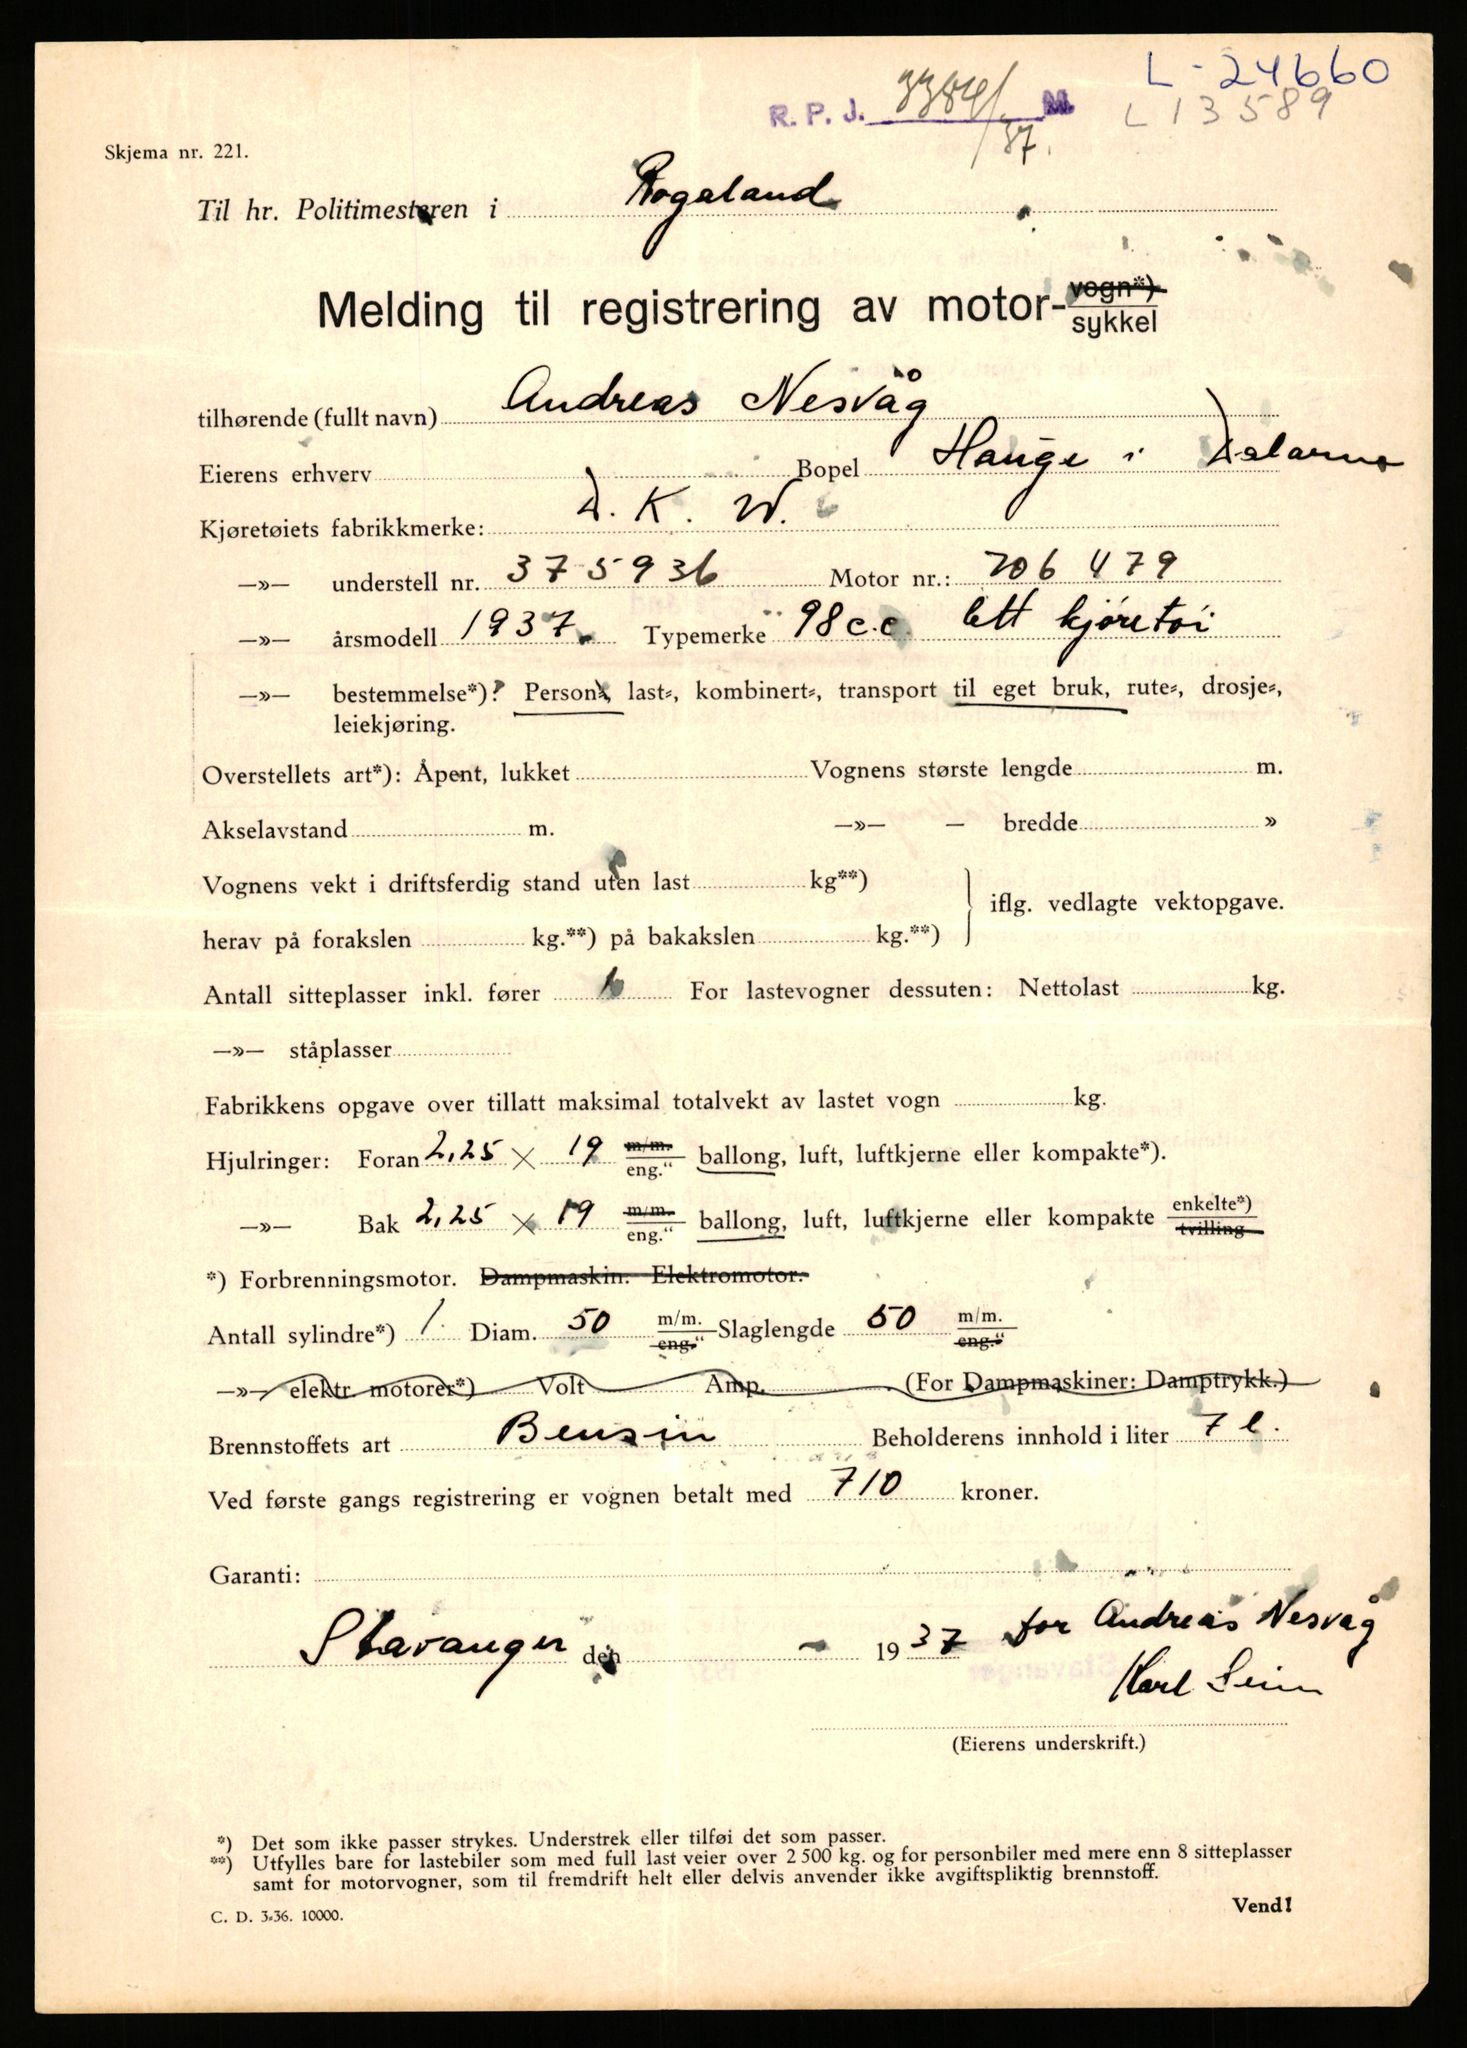 L - 24660
R. P. J. 3384/37. M
L 13589
Skjema nr. 221.
Til hr. Politimesteren i Rogaland
Melding til registrering av motor-vogn*) sykkel
tilhørende (fullt navn) Andreas Nesvåg
Eierens erhverv Bopel Hauge i Dalarne
Kjøretøiets fabrikkmerke: D. K. W.
—»— understell nr. 375936 Motor nr.: 706479
—»— årsmodell 1937. Typemerke 98 c.c. lett kjøretøi
—»— bestemmelse*)? Person-, last-, kombinert-, transport til eget bruk, rute-, drosje-,
leiekjøring.
Overstellets art*): Åpent, lukket Vognens største lengde m.
Akselavstand m. —»— — bredde »
Vognens vekt i driftsferdig stand uten last kg**)
herav på forakslen kg.**) på bakakslen kg.**) iflg. vedlagte vektopgave.
Antall sitteplasser inkl. fører 1 For lastevogner dessuten: Nettolast kg.
—»— ståplasser
Fabrikkens opgave over tillatt maksimal totalvekt av lastet vogn kg.
Hjulringer: Foran 2,25 × 19 m/m. eng.“ ballong, luft, luftkjerne eller kompakte*).
—»— Bak 2,25 × 19 m/m. eng.“ ballong, luft, luftkjerne eller kompakte enkelte*) tvilling
*) Forbrenningsmotor. Dampmaskin. Elektromotor.
Antall sylindre*) 1. Diam. 50 m/m. eng.“ Slaglengde 50 m/m. eng.“
—»— elektr. motorer*) Volt Amp. (For Dampmaskiner: Damptrykk.)
Brennstoffets art Bensin Beholderens innhold i liter 7 l.
Ved første gangs registrering er vognen betalt med 710 kroner.
Garanti:
Stavanger den - 1937 for Andreas Nesvåg
Karl
(Eierens underskrift.)
*) Det som ikke passer strykes. Understrek eller tilføi det som passer.
**) Utfylles bare for lastebiler som med full last veier over 2 500 kg. og for personbiler med mere enn 8 sitteplasser
samt for motorvogner, som til fremdrift helt eller delvis anvender ikke avgiftspliktig brennstoff.
C. D. 3-36. 10000.
Vend!